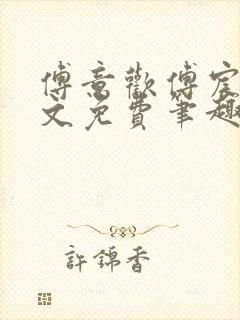 傅意歡傅宸
文免費筆趣
許錦香